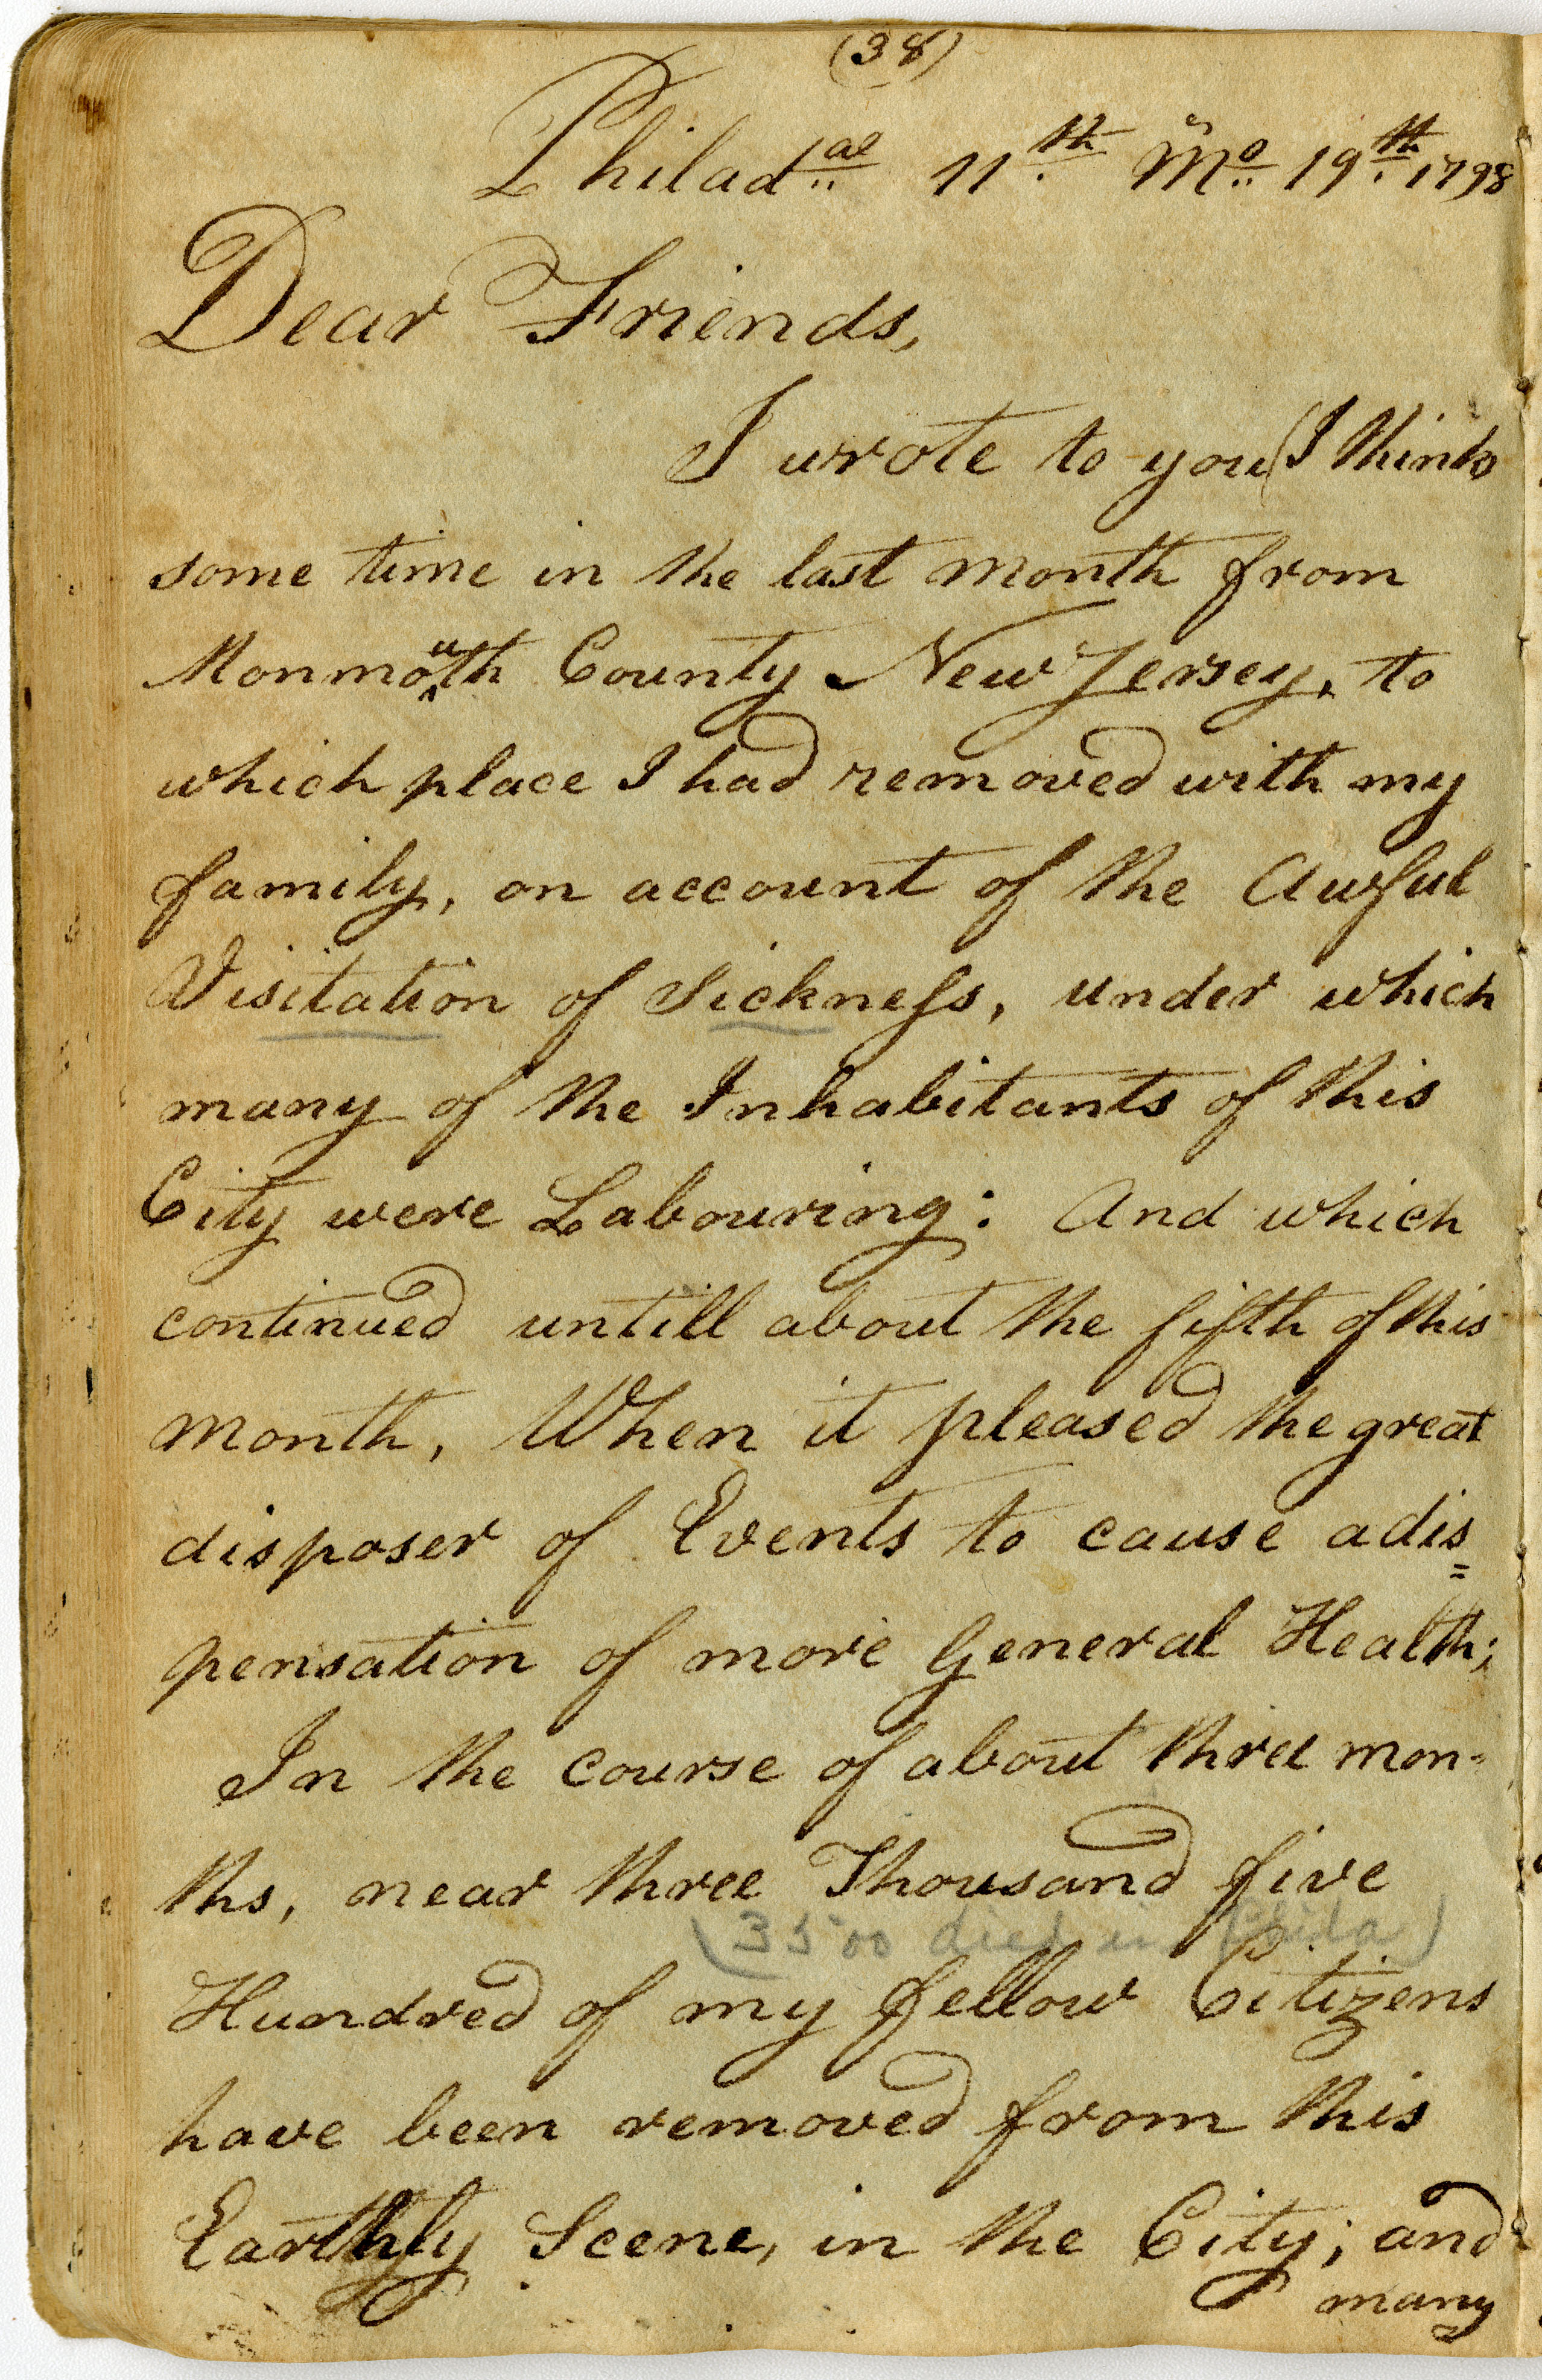 (38)
Philad.ae 11th Mo 19th 1798
Dear Friends,
I wrote to you (I think
some time in the last month from
Monmouth County New Jersey, to
which place I had removed with my
family, on account of the Awful
Visitation of Sickness, under which
many of the Inhabitants of this
City were Labouring: And which
continued untill about the fifth of this
month, When it pleased the great
disposer of Events to cause a dis=
pensation of more General Health;
In the course of about three mon-
ths, near three Thousand five
(3500 died in Phila)
Hundred of my fellow Citizens
have been removed from this
Earthly Scene, in the City; and
many